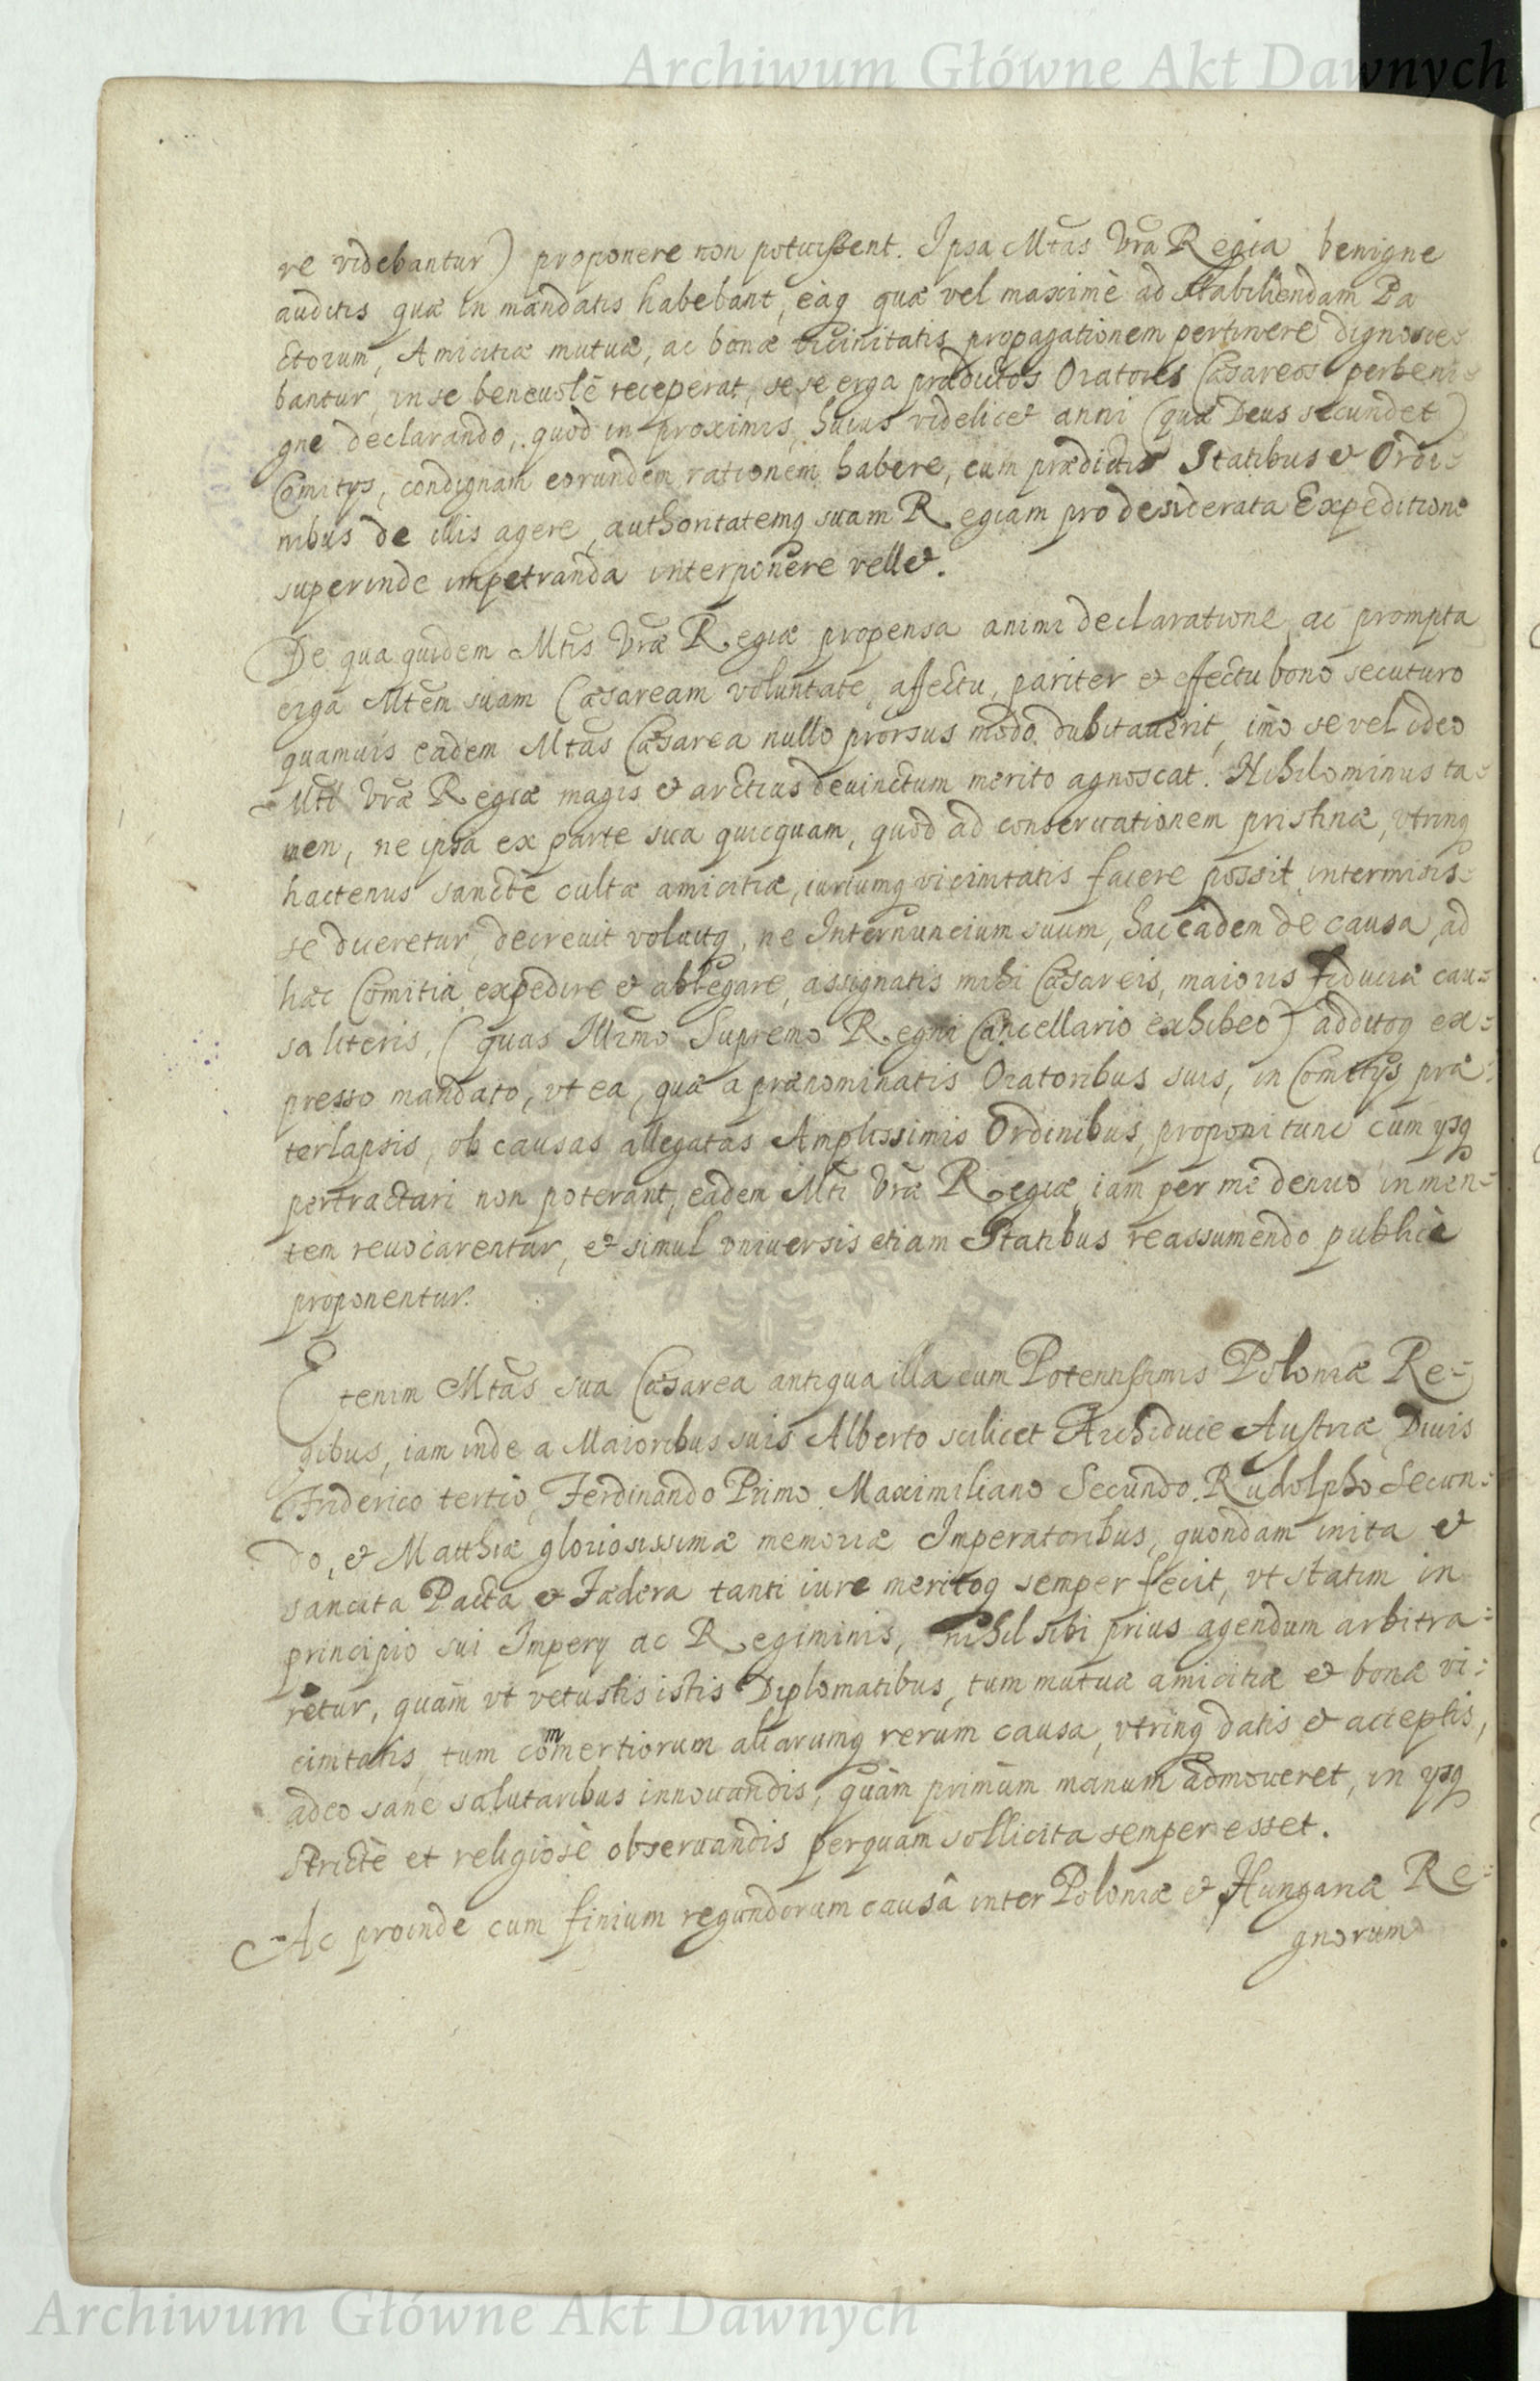 Archiwum Główne Akt Dawnych
re videbantur) proponere non potuissent. Ipsa Mtas Vra Regia benigne
auditis quæ in mandatis habebant, eaq quæ vel maximè ad stabiliendam Pa
ctorum, Amicitiæ mutuæ, ac bonæ vicinitatis propagationem pertinere dignosce=
bantur, in se beneuolè receperat, sese erga prædictos Oratores Cæsareos perbeni=
gne declarando, quòd in proximis, huius videlicet anni (quæ Deus secundet)
Comitys, condignam eorundem rationem habere, cum prædictis Statibus et Ordi=
nibus de illis agere, authoritatemq suam Regiam pro desiderata Expeditione
superinde impetranda interponere vellet.
De qua quidem Mtis Vræ Regiæ propensa animi declaratione, ac prompta
erga Mtem suam Cæsaream voluntate, affectu, pariter et effectu bono secuturo
quamuis eadem Mtas Cæsarea nullo prorsus modo dubitauerit, imò se vel ideo
Mti Vræ Regiæ magis et arctius deuinctum merito agnoscat. Nihilominus ta=
men, ne ipsa ex parte sua quicquam, quod ad conseruationem pristinæ, vtrinq
hactenus sanctè cultæ amicitiæ, iuriumq vicinitatis facere possit intermisis=
se duceretur, decreuit voluitq, ne Internuncium suum, hac eadem de causa, ad
hæc Comitia expedire et ablegare, assignatis mihi Cæsareis, maioris fiduciæ cau=
sa literis, (quas Illmo Supremo Regni Cancellario exhibeo) additoq ex=
presso mandato, vt ea, quæ a prænominatis Oratoribus suis, in Comitys præ=
terlapsis, ob causas allegatas Amplissimis Ordinibus, proponi tunc cum ysq
pertractari non poterant, eadem Mti Vræ Regiæ iam per me denuo in men=
tem reuocarentur, et simul vniuersis etiam Statibus reassumendo publicè
proponentur.
Etenim Mtas sua Cæsarea antiqua illa cum Potentissimis Poloniæ Re=
gibus, iam inde a Maioribus suis Alberto scilicet Archiduce Austriæ, Diuis
Friderico tertio, Ferdinando Primo, Maximiliano Secundo, Rudolpho Secun=
do, et Matthiæ gloriosissimæ memoriæ Imperatoribus, quondam inita et
sancita Pacta et Fædera tanti iure meritoq semper fecit, vt statim in
principio sui Impery ac Regiminis, nihil sibi prius agendum arbitra=
retur, quàm vt vetustis istis Diplomatibus, tum mutuæ amicitiæ et bonæ vi=
cinitatis, tum commertiorum aliarumq rerum causa, vtrinq datis et acceptis,
adeo sane salutaribus innouandis, quàm primùm manum admoueret, in ysq
strictè et religiosè obseruandis perquam sollicita semper esset.
Ac proinde cum finium regundorum causâ inter Poloniæ et Hungariæ Re=
gnorum
Archiwum Główne Akt Dawnych